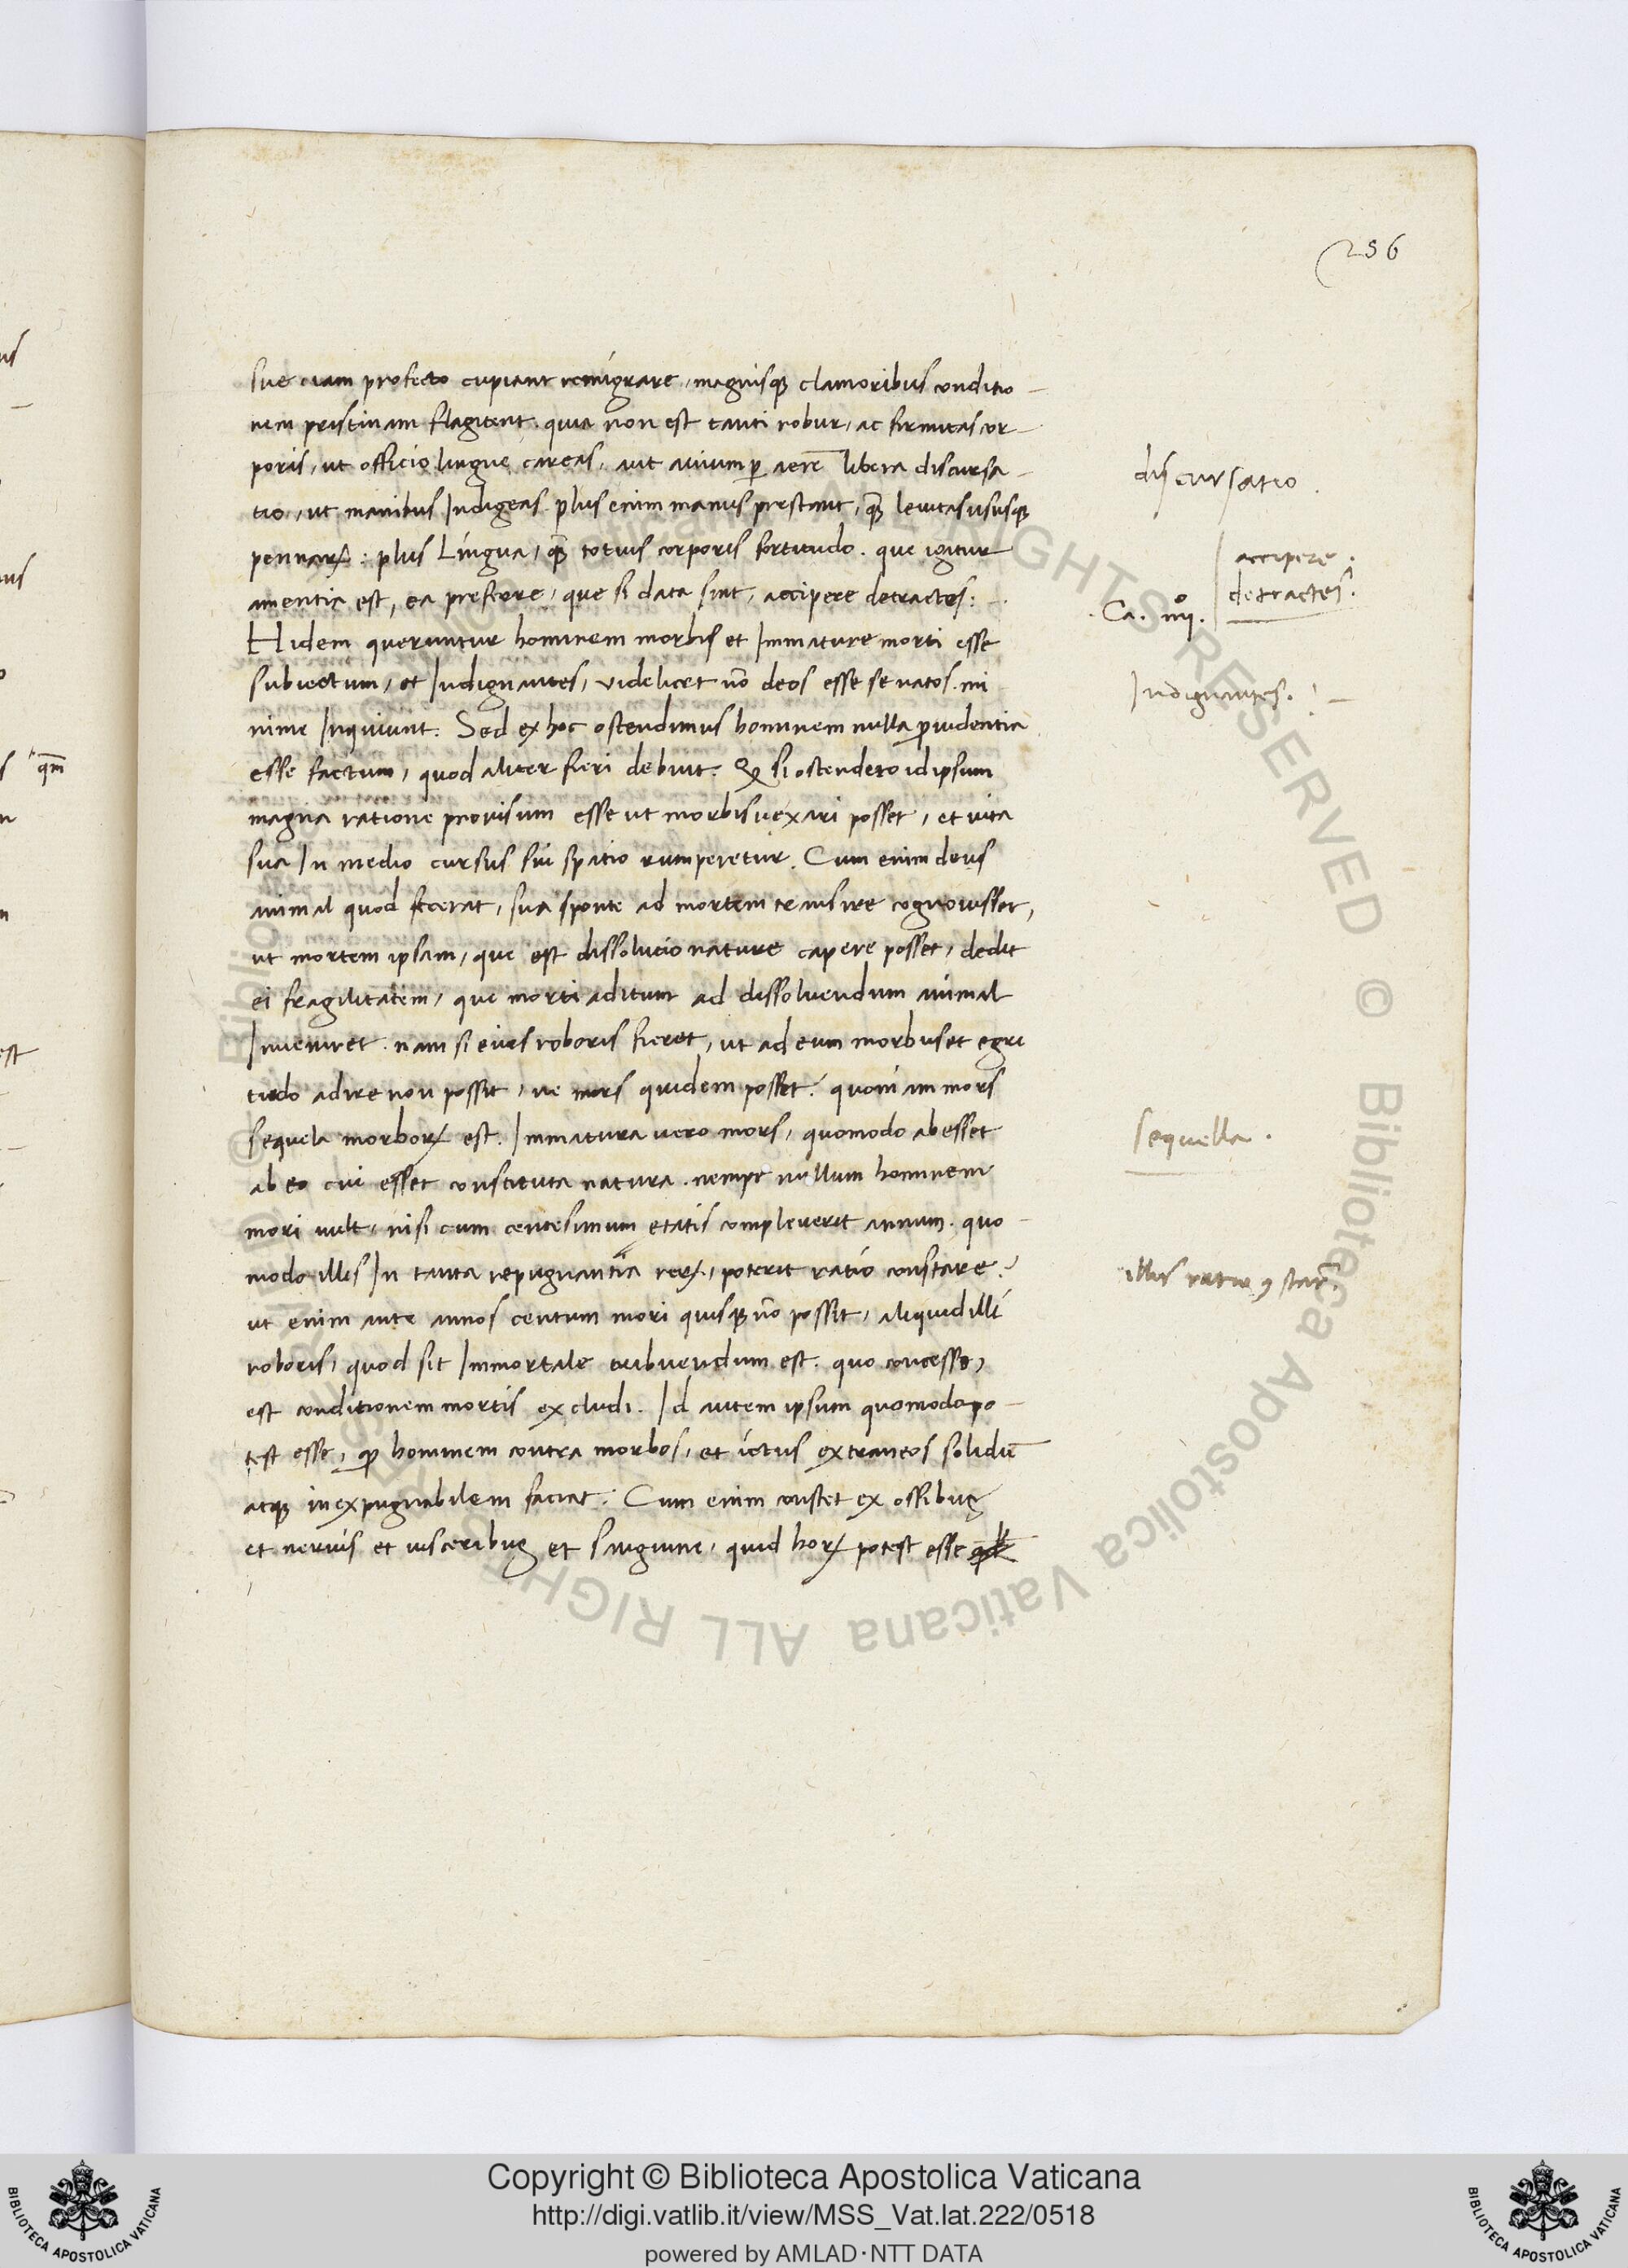 256
sue iam profecto cupiant remigrare, magnisq; clamoribus conditio-
nem pristinam flagitent. quia non est tanti robur, ac firmitas cor-
poris, ut officio lingue careas, aut auium p aerē libera discursa-
tio, ut manibus Indigeas. plus enim manus prestant, q̃ leuitas ususq;
pennaꝝ: plus Lingua, q̃ totius corporis fortitudo. que igitur
amentia est, ea preferre, que si data sint, accipere detractes:
HIdem queruntur hominem morbis et Immature morti esse
subiectum, et Indignantes, videlicet nō deos esse se natos. mi
nime Inquiunt. Sed ex hoc ostendimus hominem nulla prouidentia
esse factum, quod aliter fieri debuit. Q si ostendero id ipsum
magna ratione prouisum esse ut morbis uexari posset, et vita
sua In medio cursus sui spatio rumperetur. Cum enim deus
animal quod fecerat, sua sponte ad mortem transire cognouisset,
ut mortem ipsam, que est dissolucio nature capere posset, dedit
ei fragilitatem, que morti aditum ad dissoluendum animal
Inueniret. nam si eius roboris fieret, ut ad eum morbus et egri
tudo adire non possit, ne mors quidem posset. quoniam mors
sequela morboꝝ est. Immatura uero mors, quomodo abesset
ab eo cui esset constituta natura. nempe nullum hominem
mori uult, nisi cum centesimum etatis compleuerit annum. quo-
modo illis In tanta repugnantia reꝝ, poterit ratio constare?
ut enim ante annos centum mori quisq; nō possit, aliquid illi
roboris, quod sit Immortale tribuendum est. quo concesso,
est conditionem mortis excludi. Id autem ipsum quomodo po-
test esse, qđ hominem contra morbos, et ictus extraneos solidū
atq; inexpugnabilem faciat. Cum enim constet ex ossibus
et neruis et uisceribus et sanguine, quid hoꝝ potest esse
discursatio.
accipere.
detractes.
.Ca. iiijº.
Indignantes.
sequella.
illis ratio ꝯstar.
qm̄
est
Copyright © Biblioteca Apostolica Vaticana
http://digi.vatlib.it/view/MSS_Vat.lat.222/0518
powered by AMLAD·NTT DATA
BIBLIOTECA APOSTOLICA VATICANA
BIBLIOTECA APOSTOLICA VATICANA
© Biblioteca Apostolica Vaticana ALL RIGHTS RESERVED